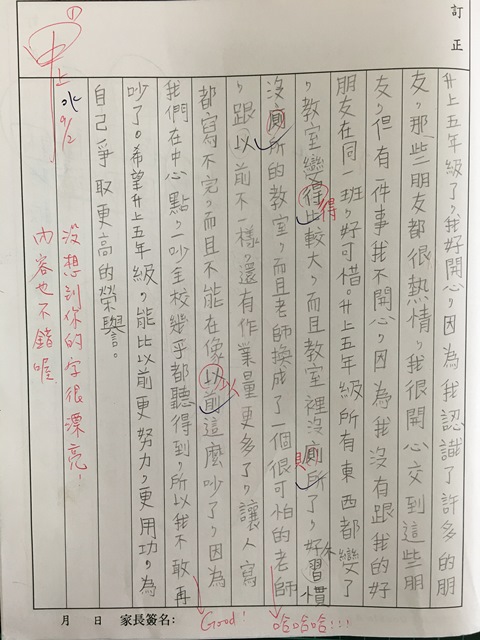 訂正
升上五年級了，我好開心，因為我認識了許多的朋
友，那些朋友都很熱情，我很開心交到這些朋
友，但有一件事我不開心，因為我沒有跟我的好
朋友在同一班，好可惜。升上五年級所有東西都變了
，教室變得比較大，而且教室裡沒廁所了，好不習慣
得
廁
沒廁所的教室，而且老師換成了一個很可怕的老師
，跟以前不一樣，還有作業量更多了，讓人寫
都寫不完，而且不能在像以前這麼吵了，因為
以
我們在中心點，吵全校幾乎都聽得到，所以我不敢再
吵了。希望升上五年級，能比以前更努力，更用功，為
自己爭取更高的榮譽。
哈哈哈!!!
Good!
沒想到你的字很漂亮!
內容也不錯喔
①
甲上
9/2
月 日 家長簽名: